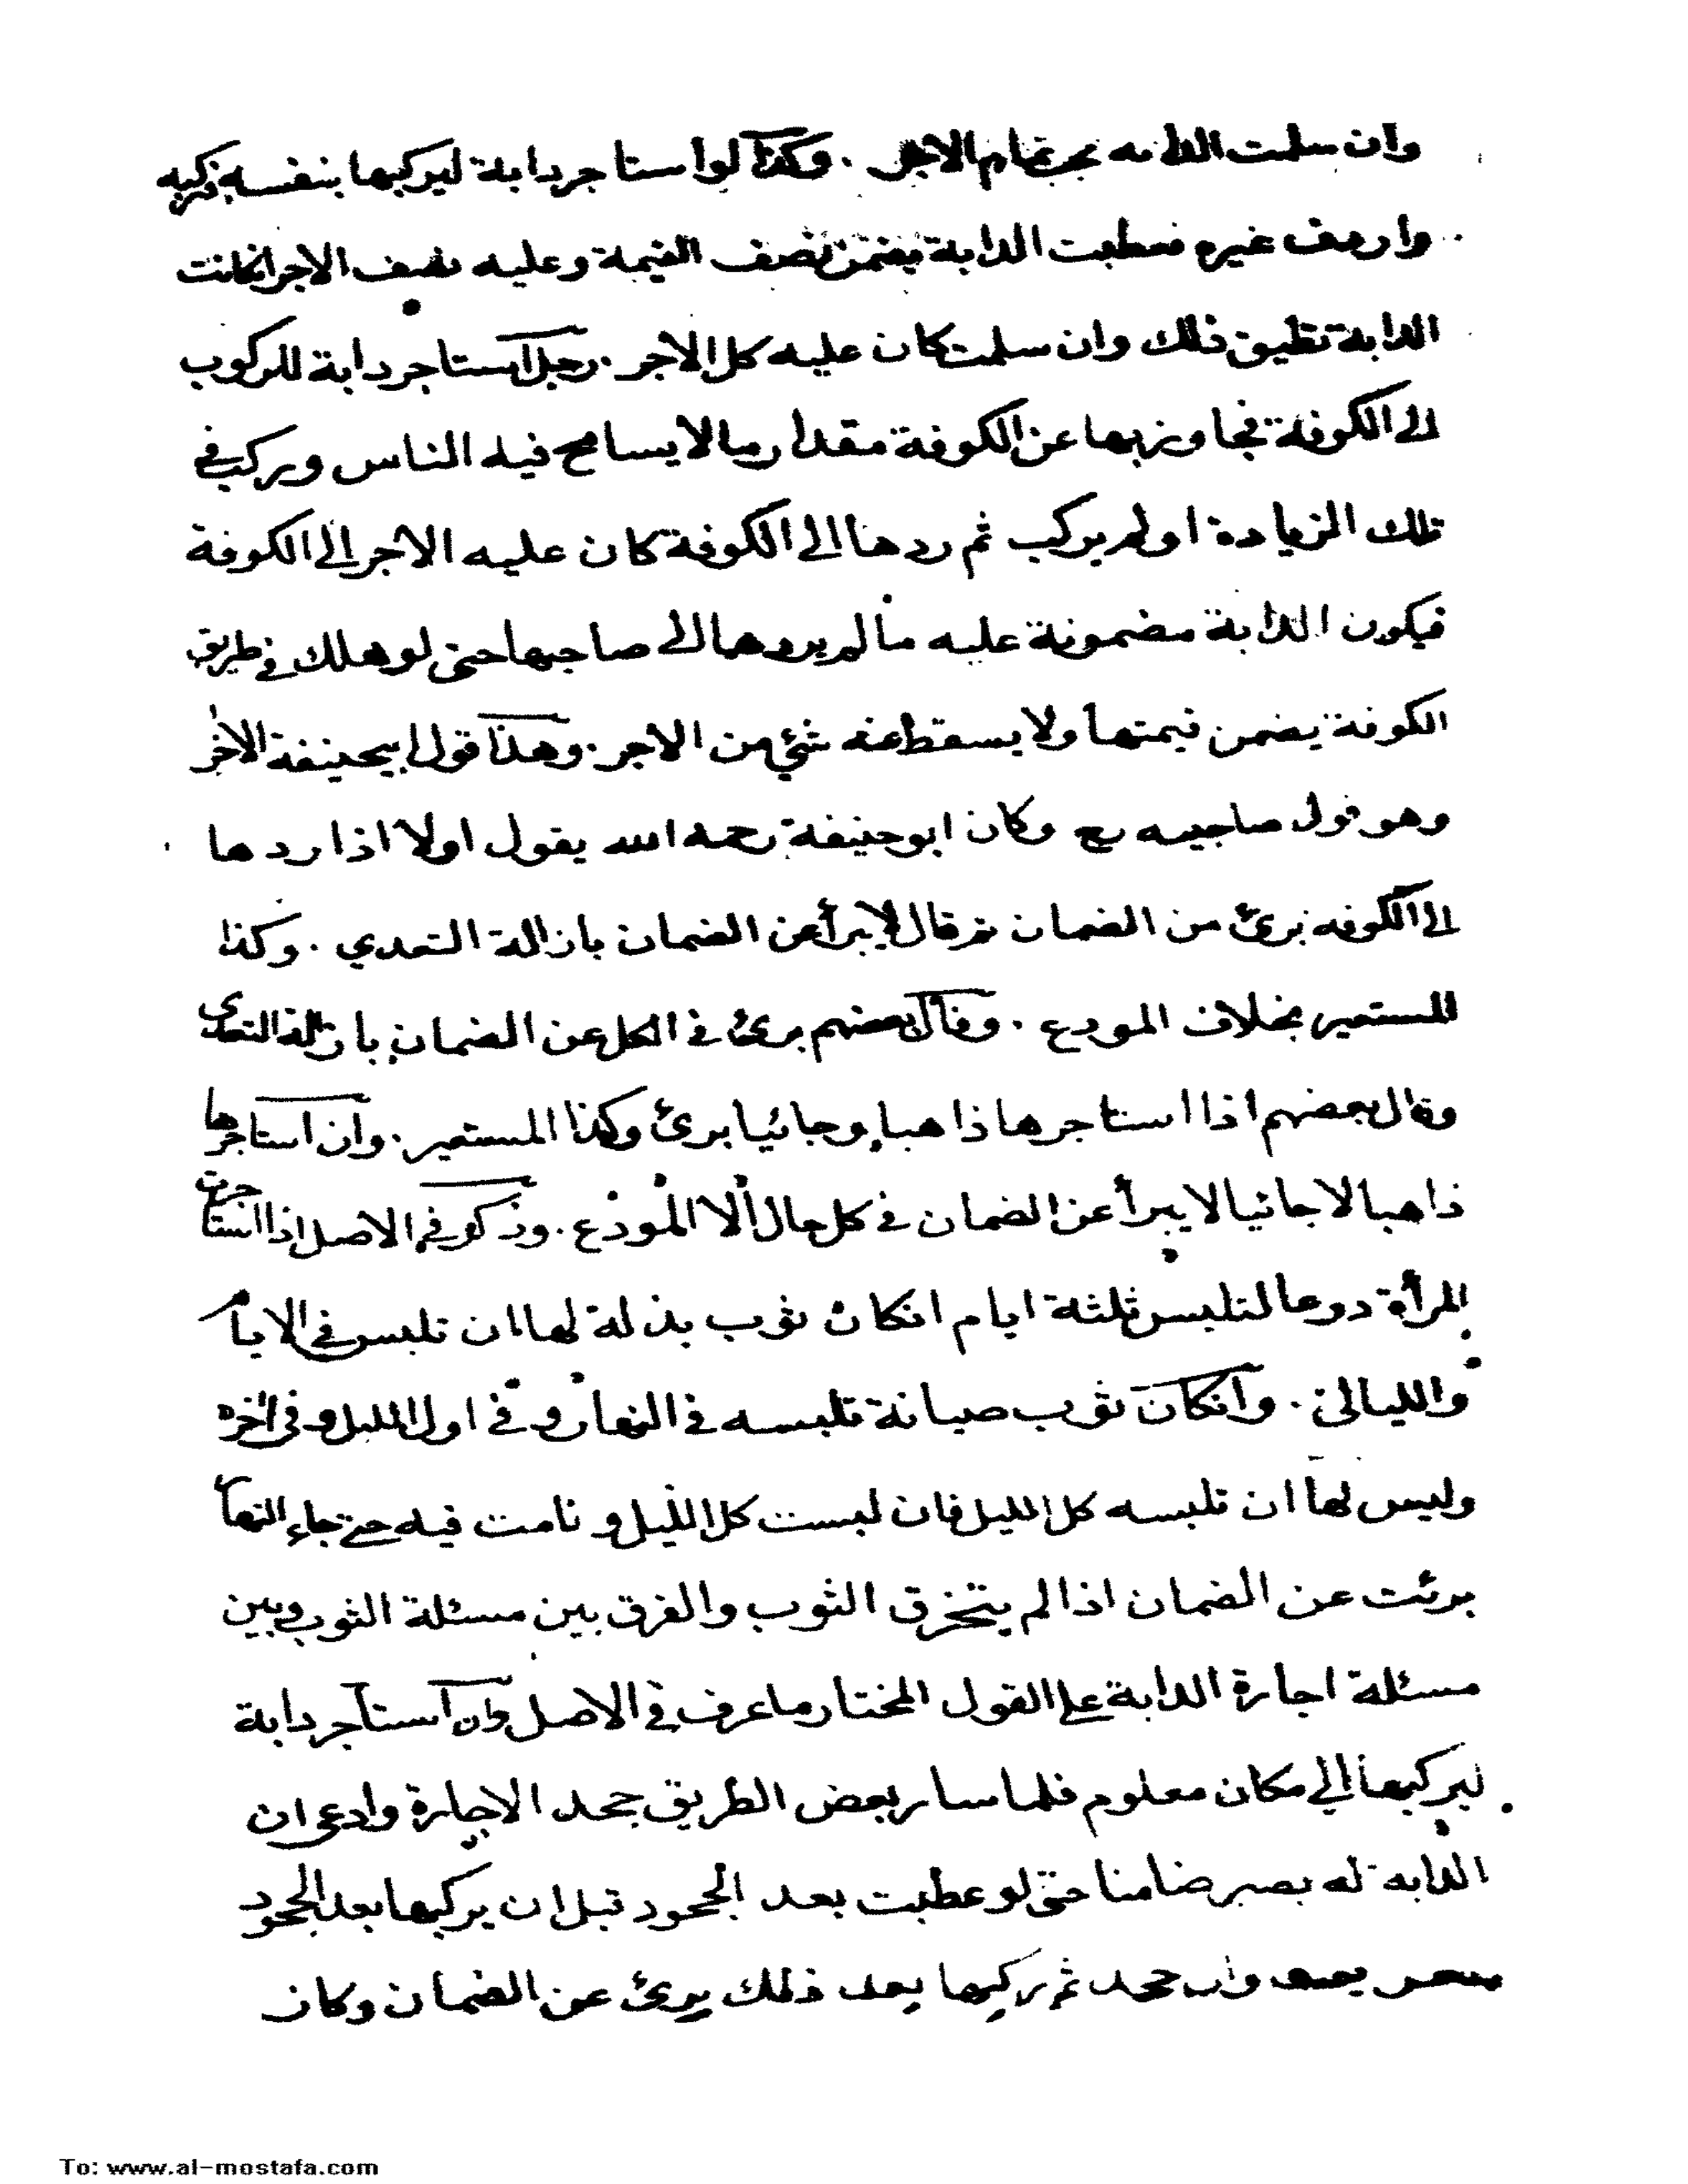 وان سلمت الدابة يجب تمام الاجر . وكذا لو استاجر دابة ليركبها بنفسه فركبه
واردف غيره فعطبت الدابة يضمن نصف القيمة وعليه نصف الاجر انكانت
الدابة تطيق ذلك وان سلمت كان عليه كل الاجر . رجل استاجر دابة للركوب
الى الكوفة فجاوز بها عن الكوفة مقدار ما لا يسامح فيه الناس ويركب في
تلك الزيادة او لم يركب ثم ردها الى الكوفة كان عليه الاجر الى الكوفة
فيكون الدابة مضمونة عليه ما لم يردها الى صاحبها حتى لو هلك في طريق
الكوفة يضمن قيمتها ولا يسقط عنه شئ من الاجر . وهذا قول ابيحنيفة الاخر
وهو قول صاحبيه رح وكان ابو حنيفة رحمه الله يقول اولا اذا ردها
الى الكوفه برئ من الضمان ثم قال لا يبرأ عن الضمان بازالة التعدي . وكذا
المستعير بخلاف المودع . وقال بعضهم برئ في الكل عن الضمان بازالة التعدى
وقال بعضهم اذا استاجرها ذاهبا وجائيا برئ وكذا المستعير . وان استاجرها
ذاهبا لا جائيا لا يبرأ عن الضمان في كل حال الا المودع . وذكر في الاصل اذا استاجرت
المرأة درعا لتلبس ثلثة ايام انكان ثوب بذلة لها ان تلبس في الايام
والليالى . وانكان ثوب صيانة تلبسه في النهار وفي اول الليل وفى اخره
وليس لها ان تلبسه كل الليل فان لبست كل الليل و نامت فيه حتى جاء النهار
برئت عن الضمان اذا لم يتخرق الثوب والفرق بين مسئلة الثوب وبين
مسئلة اجارة الدابة على القول المختار ما عرف في الاصل وان استاجر دابة
ليركبها الى مكان معلوم فلما سار بعض الطريق جحد الاجارة وادعى ان
الدابه له يصير ضامنا حتى لو عطبت بعد الجحود قبل ان يركبها بعد الجحود
وان جحد ثم ركبها بعد ذلك برئ عن الضمان وكان
To: www.al-mostafa.com